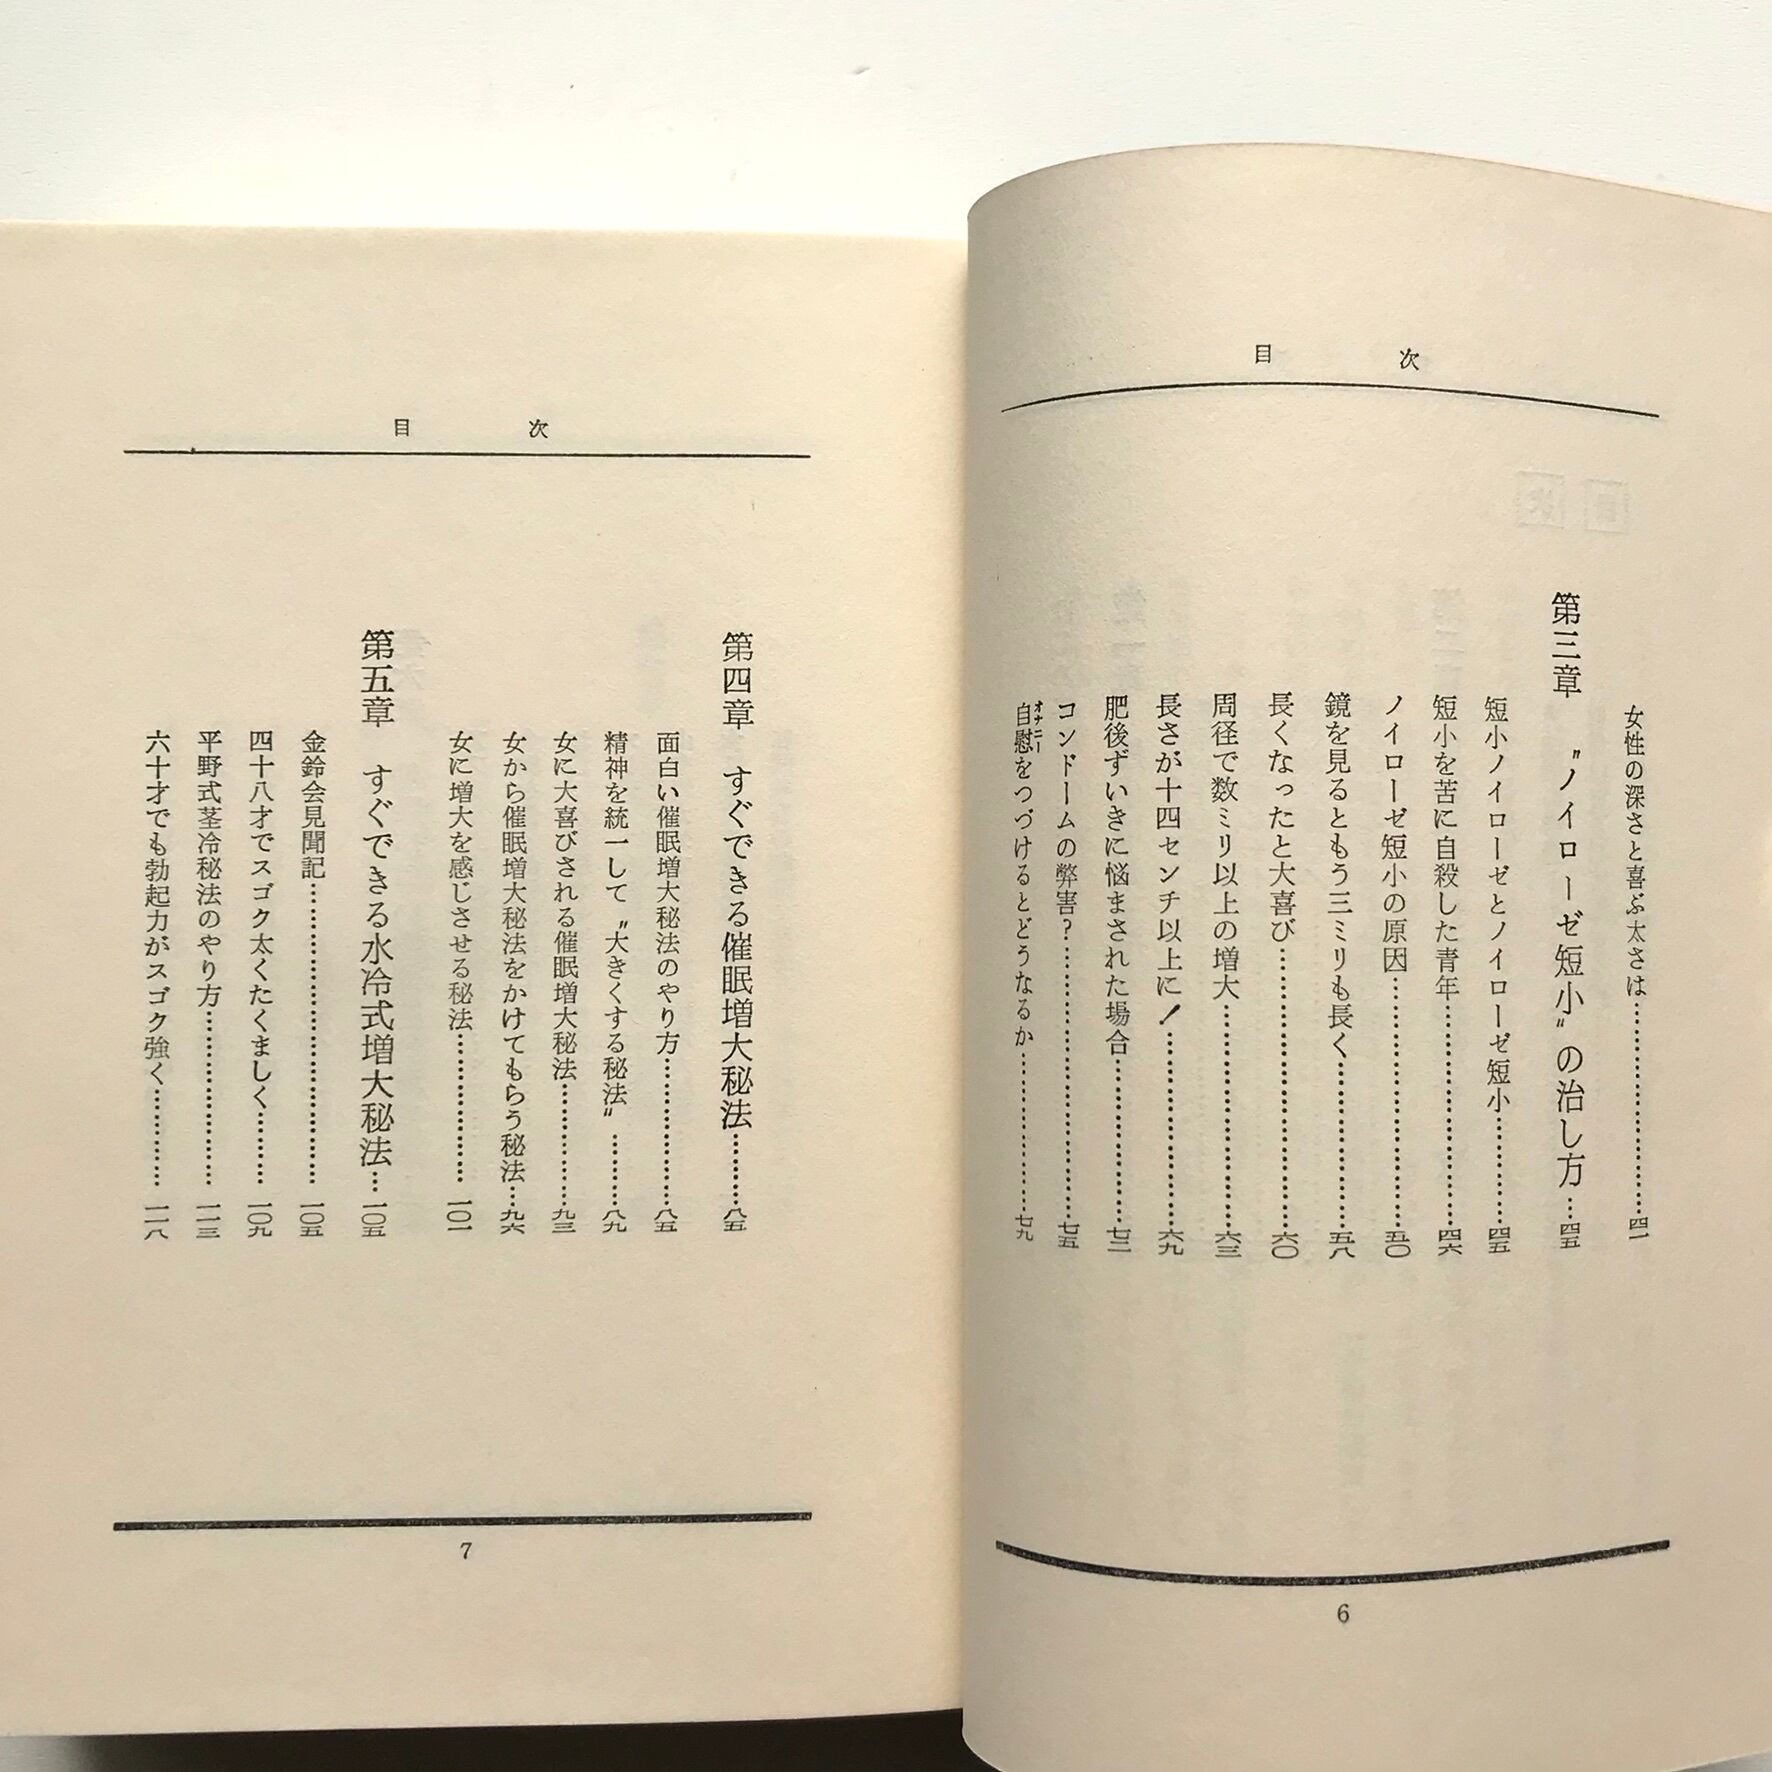 目次
女性の深さと喜ぶ太さは……………………四一
第三章 〝ノイローゼ短小〟の治し方…四五
短小ノイローゼとノイローゼ短小…………四五
短小を苦に自殺した青年……………………四六
ノイローゼ短小の原因………………………五〇
鏡を見るともう三ミリも長く………………五八
長くなったと大喜び…………………………六〇
周径で数ミリ以上の増大……………………六三
長さが十四センチ以上に!…………………六九
肥後ずいきに悩まされた場合………………七二
コンドームの弊害?…………………………七五
自慰をつづけるとどうなるか………………七九
オナニー
6
目次
第四章 すぐできる催眠増大秘法………八五
面白い催眠増大秘法のやり方………………八五
精神を統一して〝大きくする秘法〟………八九
女に大喜びされる催眠増大秘法……………九三
女から催眠増大秘法をかけてもらう秘法…九六
女に増大を感じさせる秘法…………………一〇一
第五章 すぐできる水冷式増大秘法…一〇五
金鈴会見聞記…………………………………一〇五
四十八才でスゴク太くたくましく…………一〇九
平野式茎冷秘法のやり方……………………一一三
六十才でも勃起力がスゴク強く……………一一八
7